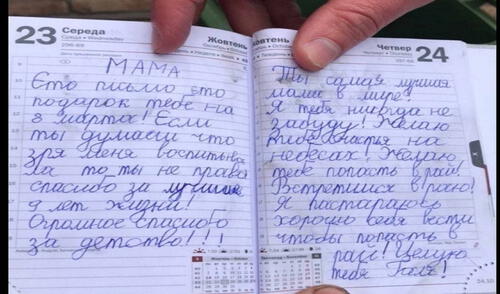 23 Середа
Среда • Wednesday
296-69
Жовтень
МАМА
Єто письмо єто
подарок тебе на
8 марта! Если
ты думаеш что
зря меня воспитыва
ла то ты не права
спасибо за лучшие
9 лет жизни!
Огромное спасибо
за детство!!!
Жовтень
Четвер 24
Ты самая лучшая
мама в мире!
Я тебя никогда не
забуду! Желаю
тебе счастья на
небесах! Желаю
тебе попасть в рай!
Встретимся в раю!
Я пастараюсь
хорошо себя вести
чтобы попасть в
рай! Целую
тебя Галя!